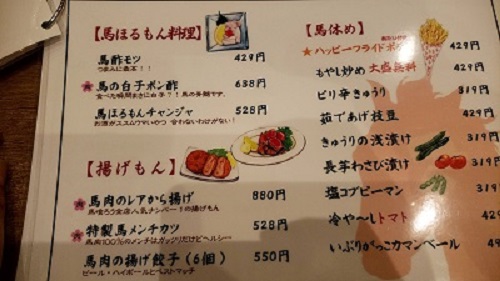 【馬ほるもん料理】
馬酢モツ 429円
★馬の白子ポン酢 638円
馬ほるもんチャンジャ 528円
【揚げもん】
馬肉のレアから揚げ 880円
特製馬メンチカツ 528円
馬肉100%のメンチはガッツリだけどヘルシー
馬肉の揚げ餃子(6個) 550円
ビール・ハイボールにベストマッチ
【馬休め】
★ハッピーフライドポ 429円
もやし炒め 大盛無料 429円
ピリ辛きゅうり 319円
茹であげ枝豆 429円
きゅうりの浅漬け 319円
長芋わさび漬け 319円
塩コブピーマン 319円
冷や〜しトマト 4
いぶりがっこカマンベール 49